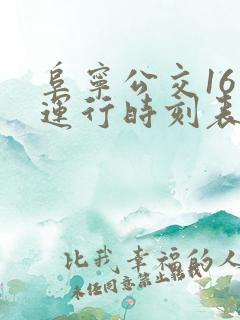 阜宁公交16
运行時刻表
比我幸福的人
未经同意禁止转载